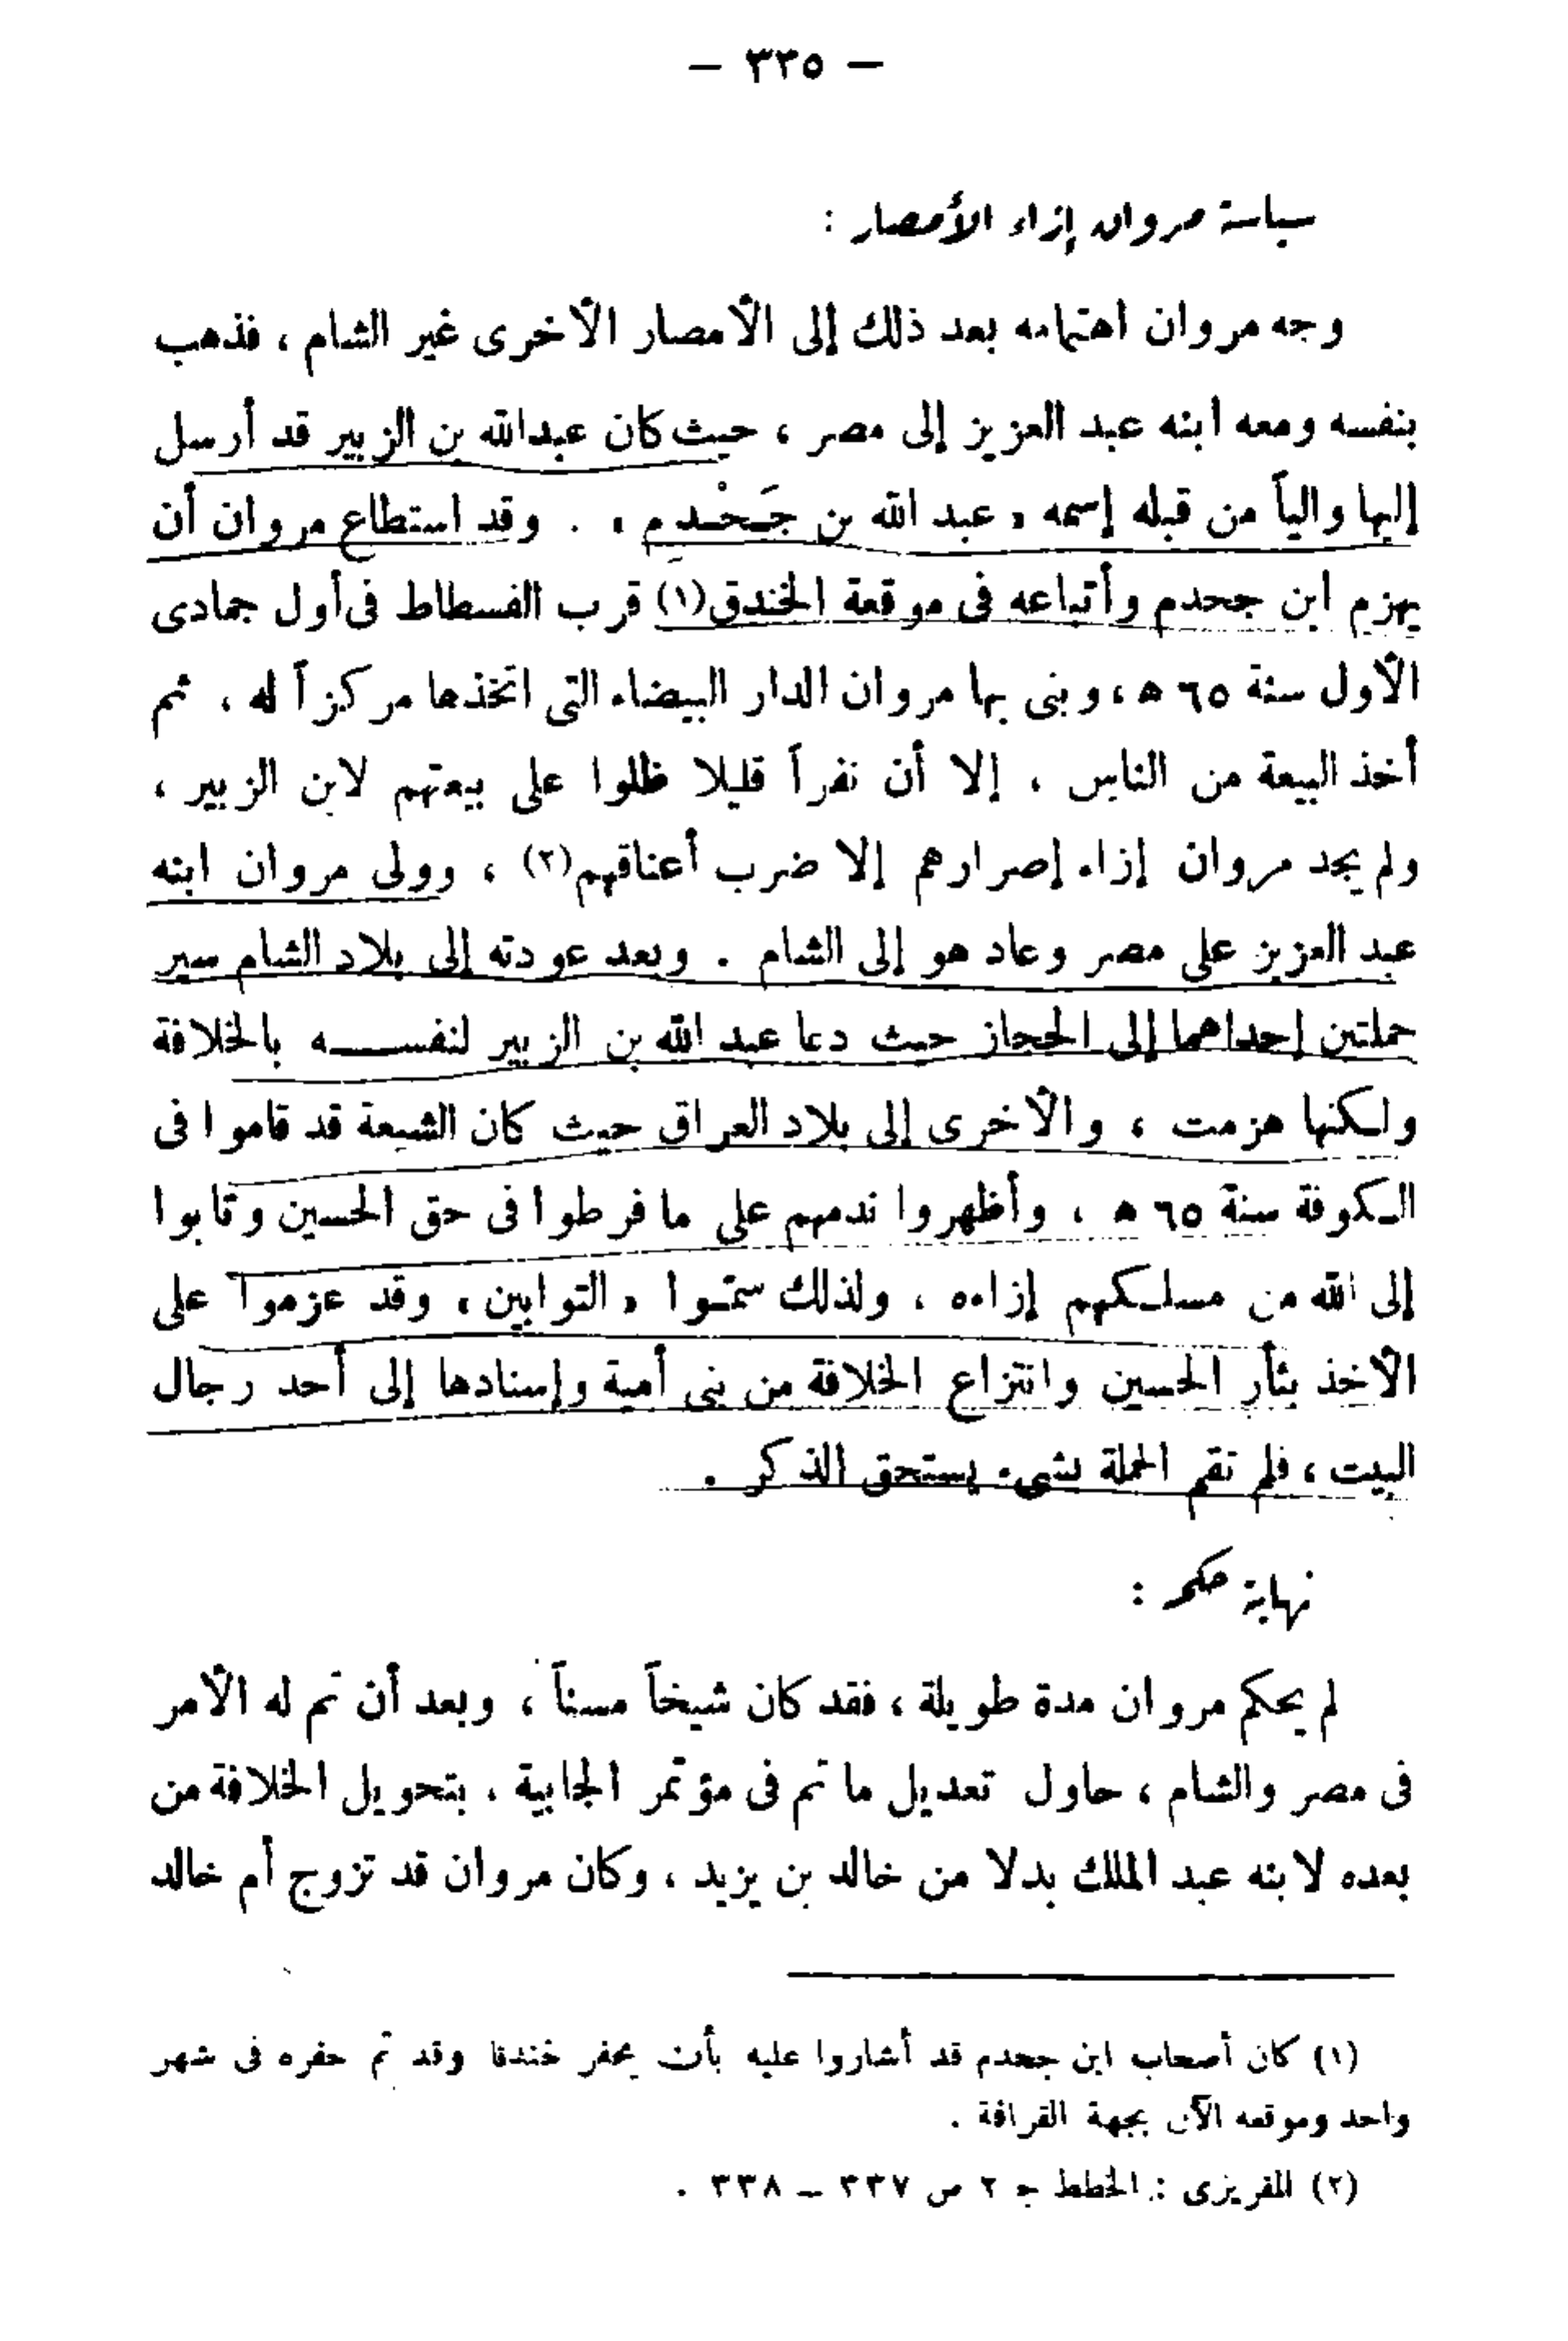 — ٣٢٥ —
سياسة مروان إزاء الأمصار :
وجه مروان اهتمامه بعد ذلك إلى الأمصار الأخرى غير الشام ، فذهب
بنفسه ومعه ابنه عبد العزيز إلى مصر ، حيث كان عبدالله بن الزبير قد أرسل
إليها والياً من قبله إسمه « عبد الله بن جَحْدم » . وقد استطاع مروان أن
يهزم ابن جحدم وأتباعه فى موقعة الخندق(١) قرب الفسطاط فى أول جمادى
الأول سنة ٦٥ ه ، وبنى بها مروان الدار البيضاء التى اتخذها مركزاً له ، ثم
أخذ البيعة من الناس ، إلا أن نفراً قليلا ظلوا على بيعتهم لابن الزبير ،
ولم يجد مروان إزاء إصرارهم إلا ضرب أعناقهم(٢) ، وولى مروان ابنه
عبد العزيز على مصر وعاد هو إلى الشام . وبعد عودته إلى بلاد الشام سير
حملتين إحداهما إلى الحجاز حيث دعا عبد الله بن الزبير لنفســه بالخلافة
ولكنها هزمت ، والأخرى إلى بلاد العراق حيث كان الشيعة قد قاموا فى
الكوفة سنة ٦٥ ه ، وأظهروا ندمهم على ما فرطوا فى حق الحسين وتابوا
إلى الله من مسلكهم إزاءه ، ولذلك سمّوا « التوابين » وقد عزموا على
الأخذ بثأر الحسين وانتزاع الخلافة من بنى أمية وإسنادها إلى أحد رجال
البيت ، فلم تقم الحملة بشىء يستحق الذكر .
نهاية حكمه :
لم يحكم مروان مدة طويلة ، فقد كان شيخاً مسناً ، وبعد أن تم له الأمر
فى مصر والشام ، حاول تعديل ما تم فى مؤتمر الجابية ، بتحويل الخلافة من
بعده لابنه عبد الملك بدلا من خالد بن يزيد ، وكان مروان قد تزوج أم خالد
(١) كان أصحاب ابن جحدم قد أشاروا عليه بأن يحفر خندقا وقد تم حفره فى شهر
واحد وموقعه الآن بجهة القرافة .
(٢) المقريزى : الخطط ج ٢ ص ٣٣٧ – ٣٣٨ .